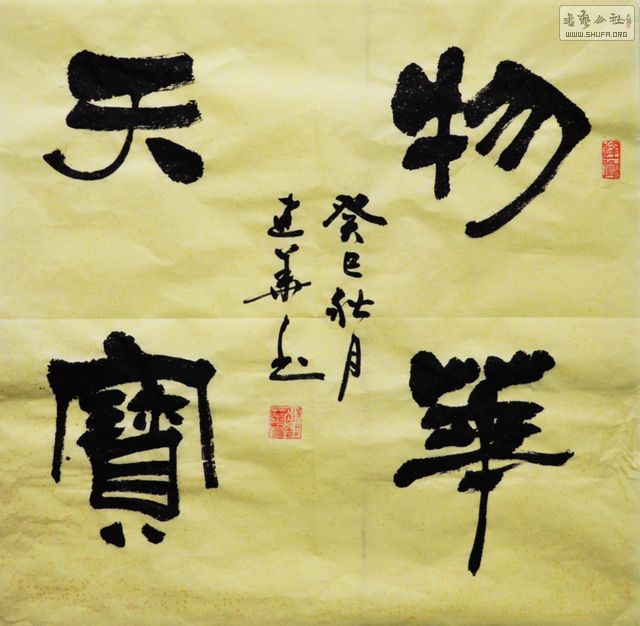 物華
天寶
癸巳秋月
建華書
書藝公社
WWW.SHUFA.ORG